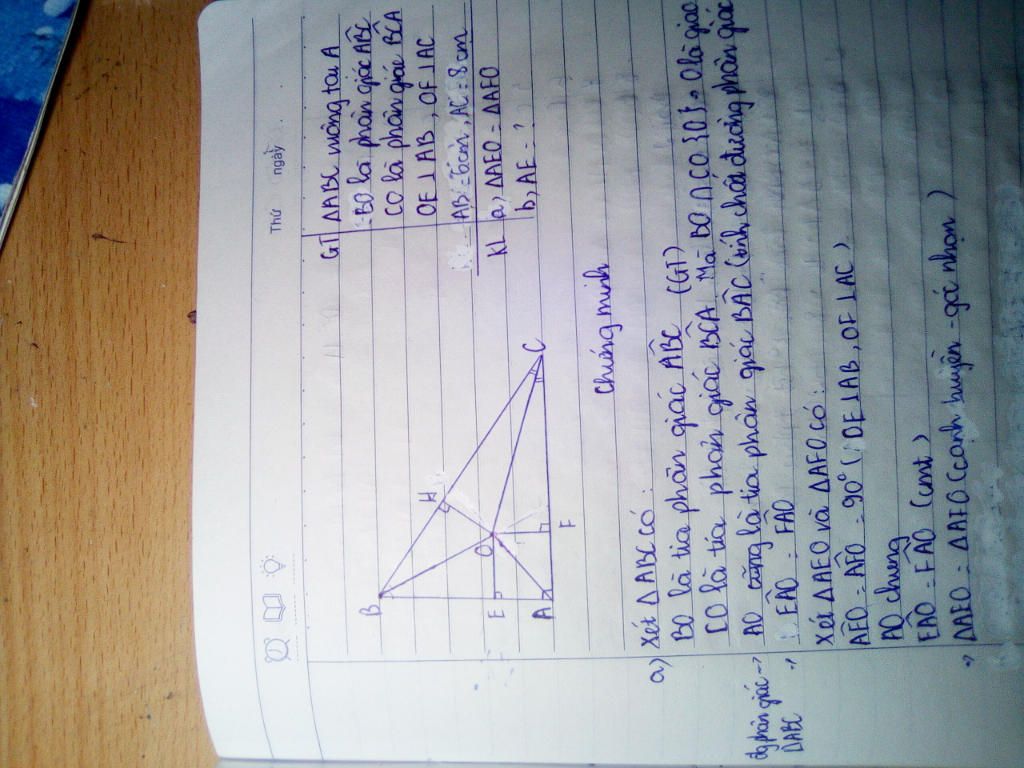 Thứ ngày
GT ΔABC vuông tại A
BO là phân giác AB̂C
CO là phân giác BĈA
OE ⊥ AB, OF ⊥ AC
AB = 6cm, AC = 8cm
KL a, ΔAEO = ΔAFO
b, AE = ?
B
H
O
E
A
F
C
Chứng minh
a) Xét ΔABC có:
BO là tia phân giác AB̂C (GT)
CO là tia phân giác BĈA Mà BO ∩ CO {O} → O là giao
đg phân giác → AO cũng là tia phân giác BÂC (tính chất đường phân giác
ΔABC → EÂO = FÂO
Xét ΔAEO và ΔAFO có:
AÊO = AF̂O = 90° (OE ⊥ AB, OF ⊥ AC)
AO chung
EÂO = FÂO (cmt)
→ ΔAEO = ΔAFO (cạnh huyền - góc nhọn)